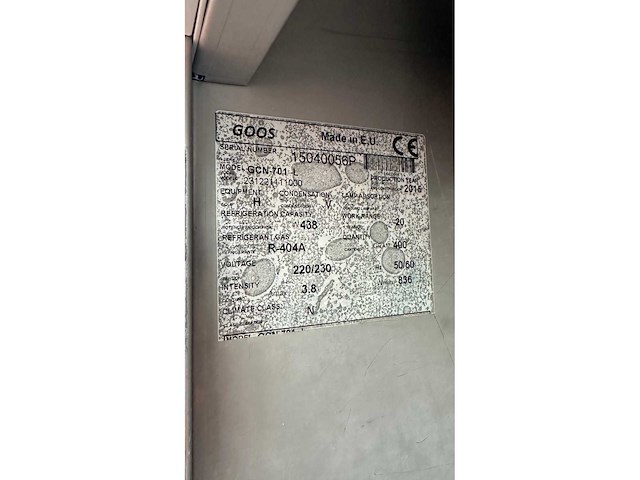 GOOS Made in E.U. CE
SERIAL NUMBER 15040056P
MODEL GCN-701 L PRODUCTION YEAR
231221111000 2016
EQUIPMENT CONDENSATION LAMP ABSORTION
H V
REFRIGERATION CAPACITY WORK RANGE
W 438 -20
REFRIGERANT GAS QUANTITY
R-404A 400
VOLTAGE 220/230 Hz 50/60
INTENSITY 3.8 836
CLIMATE CLASS N
MODEL GCN-701 L